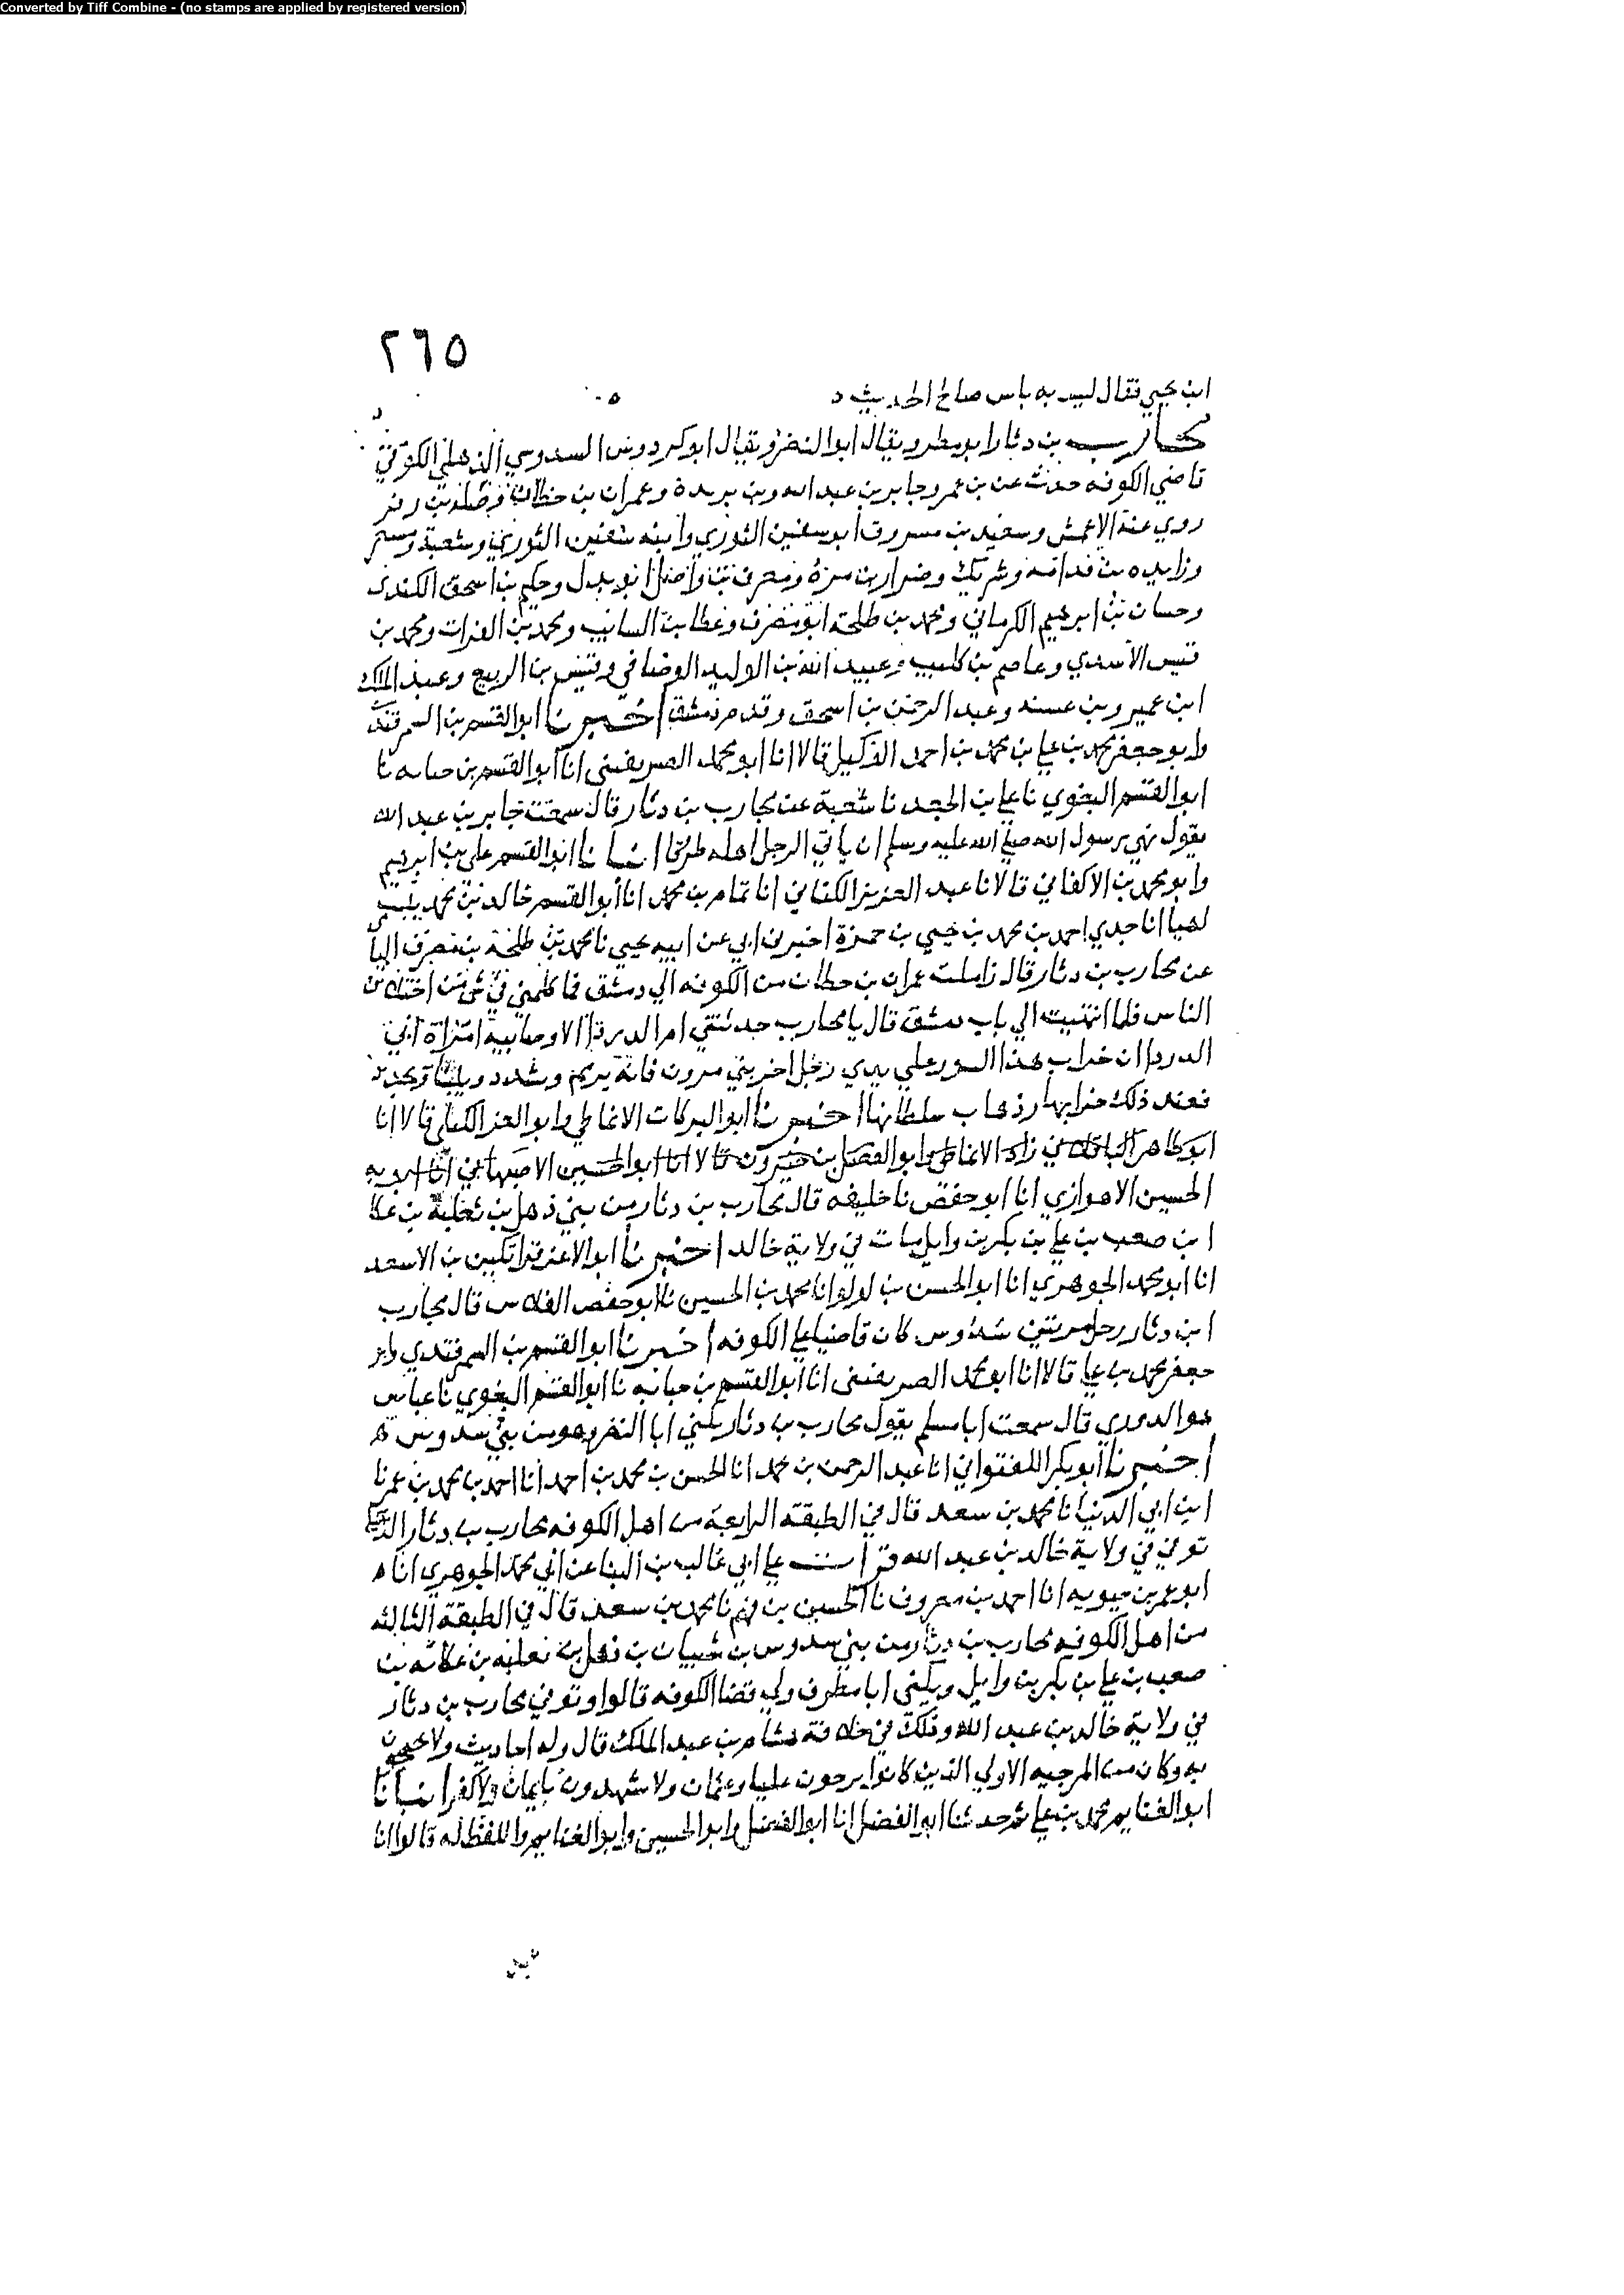 Converted by Tiff Combine - (no stamps are applied by registered version)
٢٦٥
ابن يحيى فقال ليس به باس صالح الحديث ه
محارب بن دثار ابو مطرو يقال ابو النضر ويقال ابو كردوس السدوسي الذهلي الكوفي
قاضي الكوفه حدث عن بن عمر وجابر بن عبد الله وبن بريدة وعمران بن حطان وصله بن زفر
روي عنه الاعمش وسعيد بن مسروق ابو سفين الثوري وابنه سفين الثوري وشعبة ومسعر
وزايده بن قدامه وشريك وضرار بن مرة ومعرف بن واصل ابو بدل وحكيم بن اسحق الكندي
وحسان بن ابرهيم الكرماني ومحمد بن طلحة ابو مصرف وعطا بن السايب ومحمد بن الفرات ومحمد بن
قيس الاسدي وعاصم بن كليب وعبيد الله بن الوليد الوصافي وقيس بن الربيع وعبد الملك
ابن عمير وبن عسنه وعبد الرحمن بن اسحق وقدم دمشق اخبرنا ابو القسم بن السمرقندي
وابو جعفر محمد بن علي بن محمد بن احمد قالا انا ابو محمد الصريفيني انا ابو القسم بن حبابه نا
ابو القسم البغوي نا علي بن الجعد نا شعبة عن محارب بن دثار قال سمعت جابر بن عبد الله
يقول نهي رسول الله صلي الله عليه وسلم ان ياتي الرجل اهله طروقا انبانا ابو القسم علي بن ابرهيم
وابو محمد بن الاكفاني قالا نا عبد العزيز الكتاني انا تمام بن محمد انا ابو القسم خالد بن محمد بن يحيي
لهيا انا جدي احمد بن محمد بن يحيي بن حمزة اخبرن ابي عن ابيه يحيي نا محمد بن طلحة بن مصرف اليا
عن محارب بن دثار قال زاملت عمران بن حطان من الكوفه الي دمشق فما كلمني في شي من اختلاف
الناس فلما انتهيت الي باب دمشق قال يا محارب حدثتني ام الدردا الاوصابية امراة ابي
الدردا ان خراب هذا السور علي يدي رجل اخر بني مرون فانه يرم وشدد
فعند ذلك خرابها وذهاب سلطانها اخبرنا ابو البركات الانماطي وابو العز الكيلي قالا انا
ابو طاهر الباقلاني زاد الانماطي وابو الفضل بن خيرون قالا انا ابو الحسين الاصبهاني انا ابو
الحسين الاهوازي انا ابو حفص نا خليفه قال محارب بن دثار من بني ذهل بن ثعلبة بن عكا
ابن صعب بن علي بن بكر بن وايل مات في ولاية خالد اخبرنا ابو الاعز قراتكين بن الاسعد
انا ابو محمد الجوهري انا ابو الحسن بن لولو انا محمد بن الحسين نا ابو حفص الفلاس قال محارب
ابن دثار رجل من بني سدوس كان قاضيا علي الكوفه اخبرنا ابو القسم بن السمرقندي وابو
جعفر محمد بن علي قالا انا ابو محمد الصريفيني انا ابو القسم بن حبابه نا ابو القسم البغوي نا عباس
هو الدوري قال سمعت ابا مسلم يقول محارب بن دثار يكني ابا النضر وهو من بني سدوس ه
اخبرنا ابو بكر اللفتواني انا عبد الرحمن بن محمد انا الحسن بن محمد بن احمد انا احمد بن محمد بن عمر نا
ابن ابي الدنيا نا محمد بن سعد قال في الطبقه الرابعة من اهل الكوفه محارب بن دثار
توفي في ولاية خالد بن عبد الله قرات علي ابي غالب بن البنا عن ابي محمد الجوهري انا ه
ابو عمر بن حيويه انا احمد بن معروف نا الحسين بن فهم نا محمد بن سعد قال في الطبقة الثالثه
من اهل الكوفه محارب بن دثار من بني سدوس بن شيبان بن ذهل بن ثعلبه بن عكابه بن
صعب بن علي بن بكر بن وايل ويكني ابا مطرف ولي قضا الكوفه قالوا وتوفي محارب بن دثار
في ولاية خالد بن عبد الله وذلك في خلافة هشام بن عبد الملك قال وله احاديث ولا يحتجون
به وكان من المرجيه الاولي الذين كانوا يرجون عليا وعثمان ولا يشهدون بايمان ولا كفر انبانا
ابو الغنايم محمد بن علي ثم حدثنا ابو الفضل انا ابو الفضل وابو الحسين وابو الغنايم واللفظ له قالوا انا